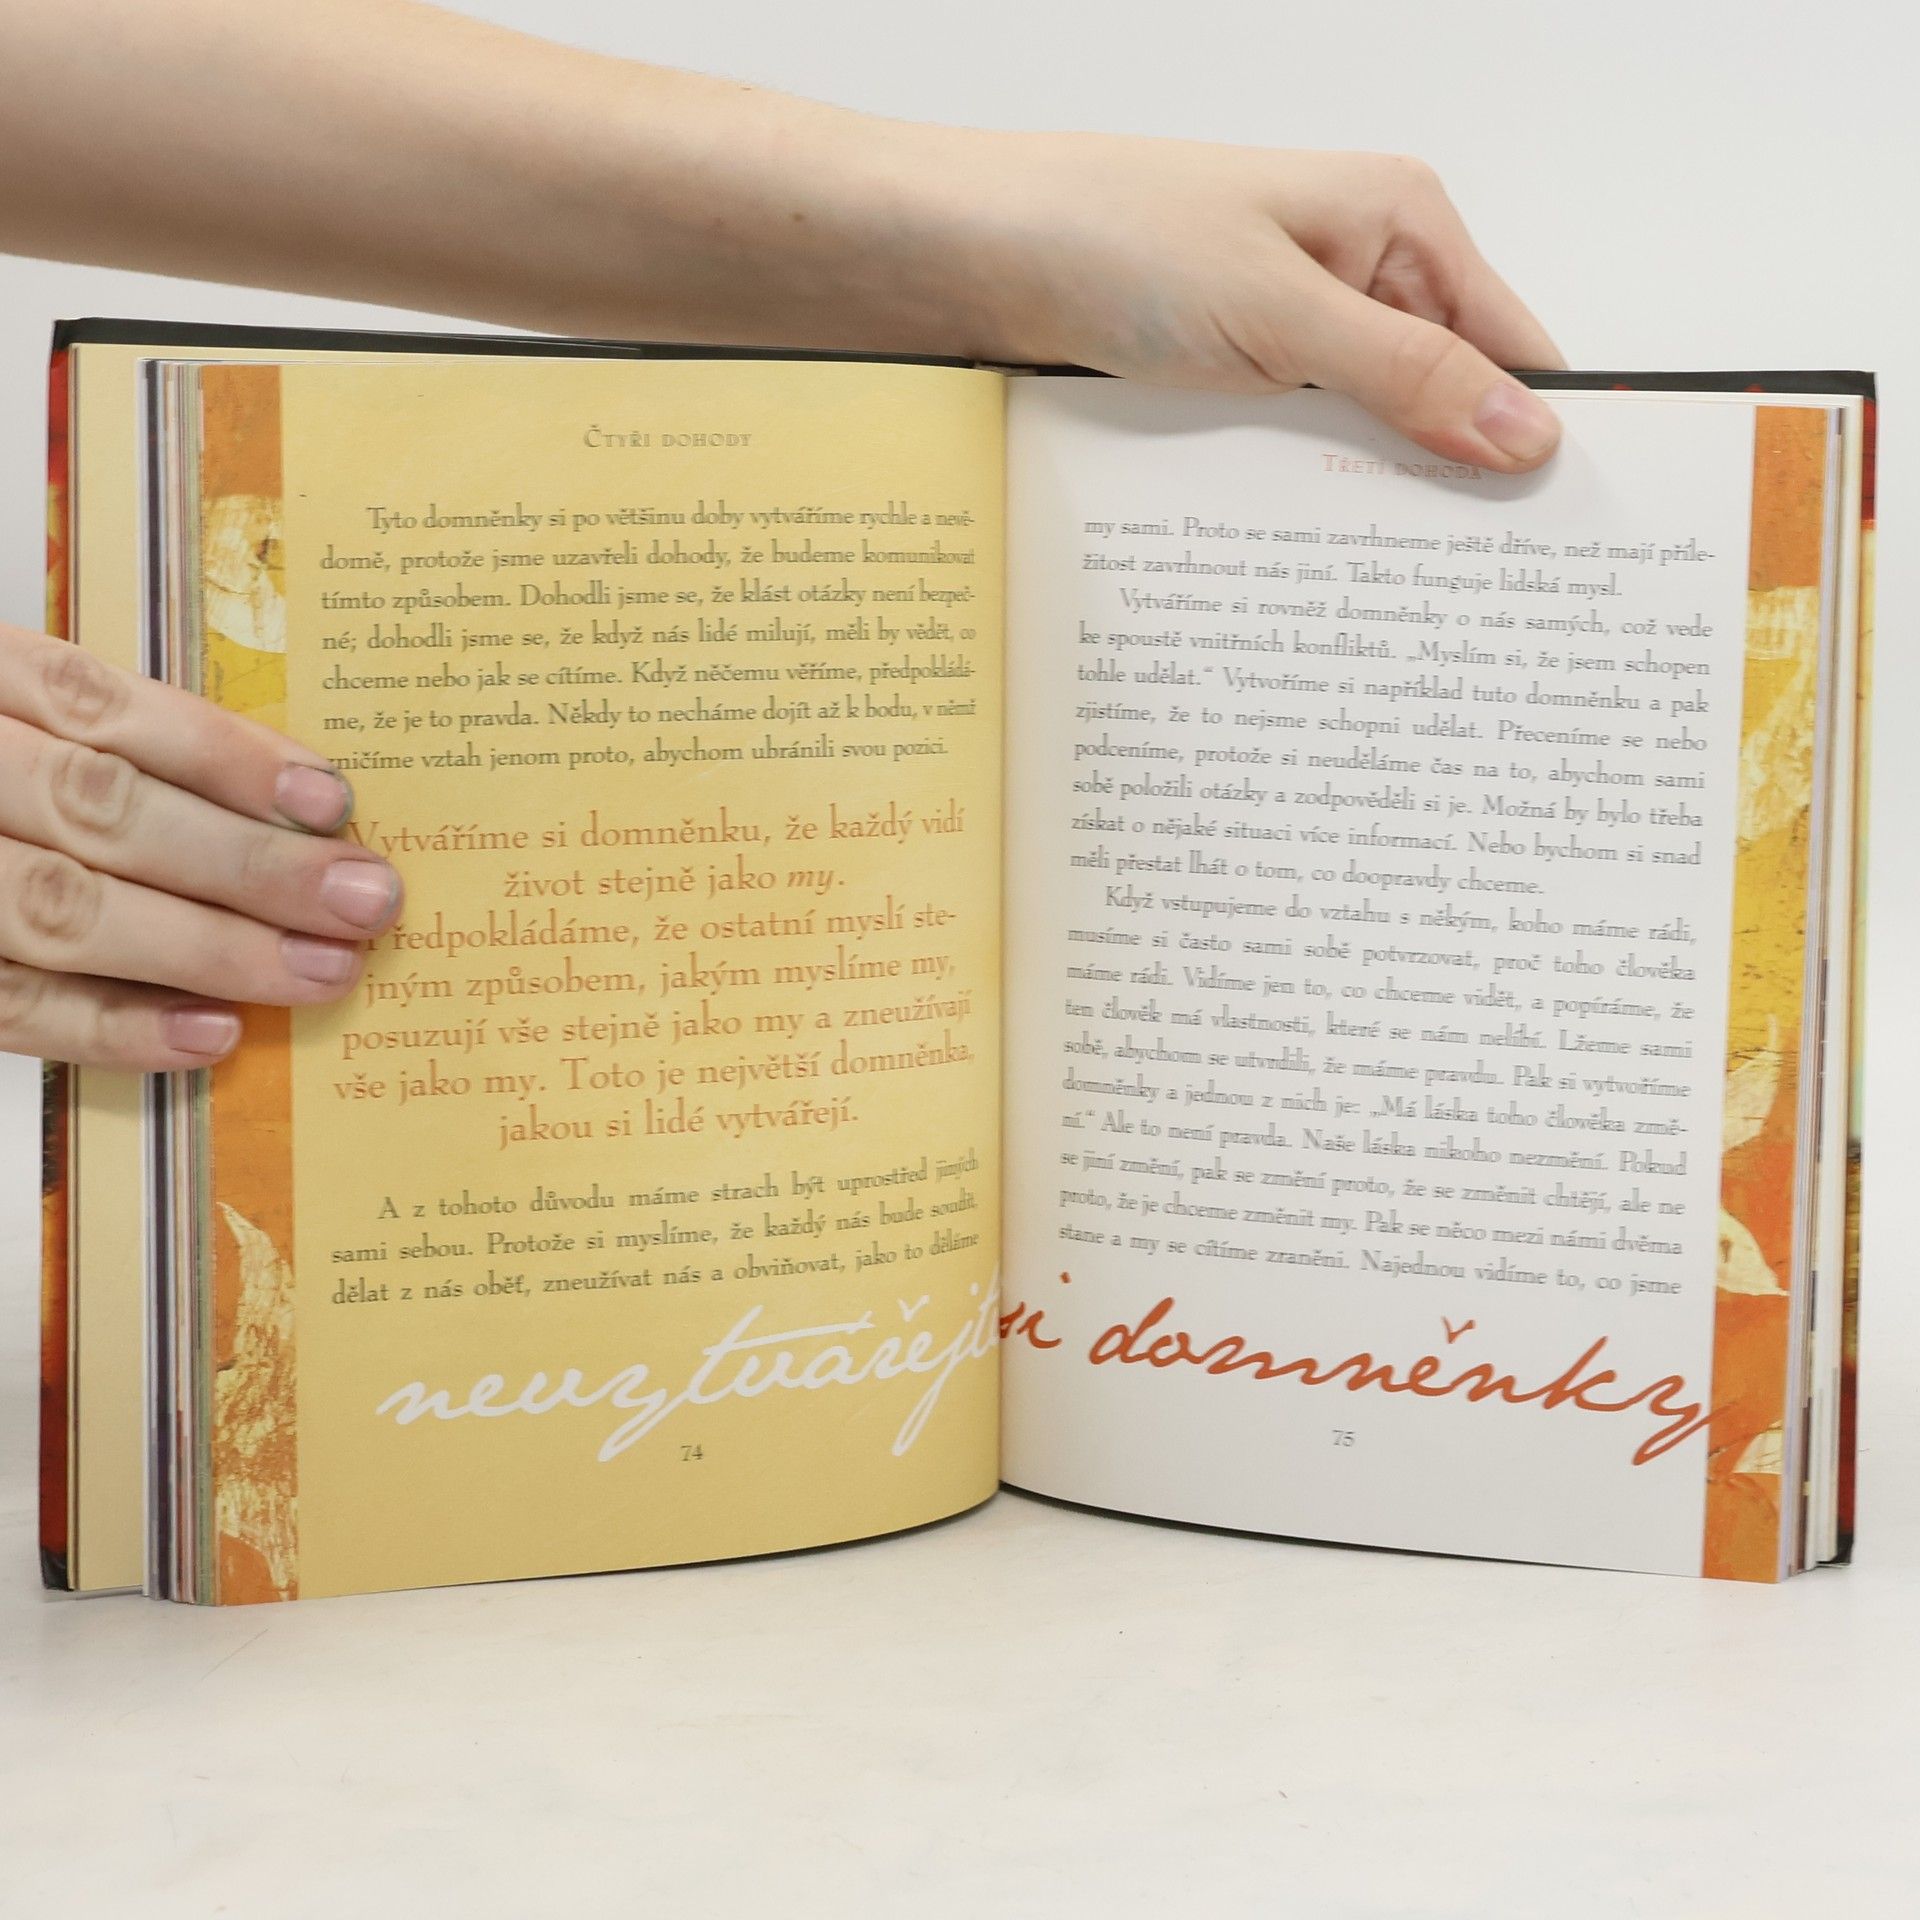 Čtyři dohody
Tyto domněnky si po většinu doby vytváříme rychle a nevě-
domě, protože jsme uzavřeli dohody, že budeme komunikovat
tímto způsobem. Dohodli jsme se, že klást otázky není bezpeč-
né; dohodli jsme se, že když nás lidé milují, měli by vědět, co
chceme nebo jak se cítíme. Když něčemu věříme, předpokládá-
me, že je to pravda. Někdy to necháme dojít až k bodu, v němž
zničíme vztah jenom proto, abychom ubránili svou pozici.
Vytváříme si domněnku, že každý vidí
život stejně jako my.
Předpokládáme, že ostatní myslí ste-
jným způsobem, jakým myslíme my,
posuzují vše stejně jako my a zneužívají
vše jako my. Toto je největší domněnka,
jakou si lidé vytvářejí.
A z tohoto důvodu máme strach být uprostřed jiných
sami sebou. Protože si myslíme, že každý nás bude soudit,
dělat z nás oběť, zneužívat nás a obviňovat, jako to děláme
nevytvářejte
74
Třetí dohoda
my sami. Proto se sami zavrhneme ještě dříve, než mají příle-
žitost zavrhnout nás jiní. Takto funguje lidská mysl.
Vytváříme si rovněž domněnky o nás samých, což vede
ke spoustě vnitřních konfliktů. „Myslím si, že jsem schopen
tohle udělat.“ Vytvoříme si například tuto domněnku a pak
zjistíme, že to nejsme schopni udělat. Přeceníme se nebo
podceníme, protože si neuděláme čas na to, abychom sami
sobě položili otázky a zodpověděli si je. Možná by bylo třeba
získat o nějaké situaci více informací. Nebo bychom si snad
měli přestat lhát o tom, co doopravdy chceme.
Když vstupujeme do vztahu s někým, koho máme rádi,
musíme si často sami sobě potvrzovat, proč toho člověka
máme rádi. Vidíme jen to, co chceme vidět, a popíráme, že
ten člověk má vlastnosti, které se nám nelíbí. Lžeme sami
sobě, abychom se utvrdili, že máme pravdu. Pak si vytvoříme
domněnky a jednou z nich je: „Má láska toho člověka změ-
ní.“ Ale to není pravda. Naše láska nikoho nezmění. Pokud
se jiní změní, pak se změní proto, že se změnit chtějí, ale ne
proto, že je chceme změnit my. Pak se něco mezi námi dvěma
stane a my se cítíme zraněni. Najednou vidíme to, co jsme
si domněnky
75